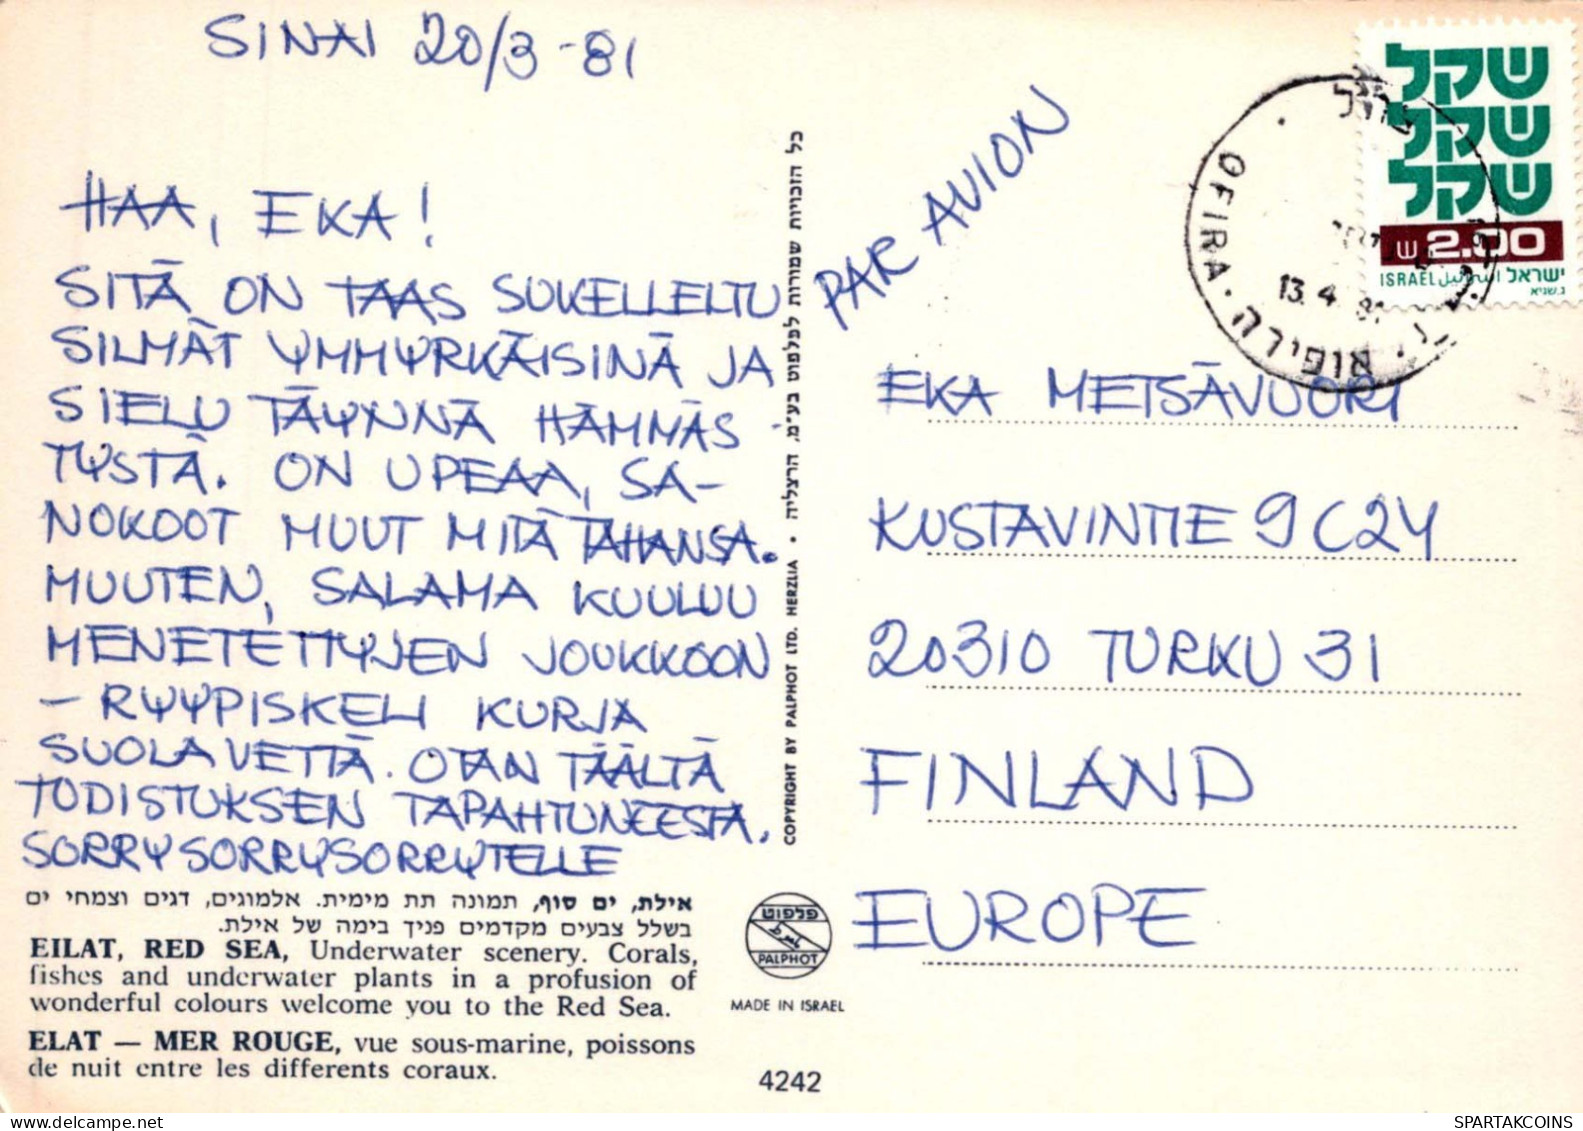 SINAI 20/3 -81
HAA, EKA!
SITÄ ON TAAS SUKELLELTU
SILMÄT YMMYRKÄISINÄ JA
SIELU TÄYNNÄ HÄMMÄS-
TYSTÄ. ON UPEAA, SA-
NOKOOT MUUT MITÄ TAHANSA.
MUUTEN, SALAMA KUULUU
MENETETTYJEN JOUKKOON
- RYYPISKELI KURJA
SUOLAVETTÄ. OTAN TÄÄLTÄ
TODISTUKSEN TAPAHTUNEESTA.
SORRYSORRYSORRYTELLE
אילת, ים סוף, תמונה תת מימית. אלמוגים, דגים וצמחי ים
בשלל צבעים מקדמים פניך בימה של אילת.
EILAT, RED SEA, Underwater scenery. Corals,
fishes and underwater plants in a profusion of
wonderful colours welcome you to the Red Sea.
ELAT — MER ROUGE, vue sous-marine, poissons
de nuit entre les differents coraux.
COPYRIGHT BY PALPHOT LTD. HERZLIA • כל הזכויות שמורות לפלפוט בע"מ, הרצליה
פלפוט
PALPHOT
MADE IN ISRAEL
4242
PAR AVION
שקל
שקל
שקל
ש 2.00
ISRAEL اسرائيل ישראל
OFIRA · אופירה
13.4.81
EKA METSÄVUORI
KUSTAVINTIE 9 C24
20310 TURKU 31
FINLAND
EUROPE
SPARTAKCOINS